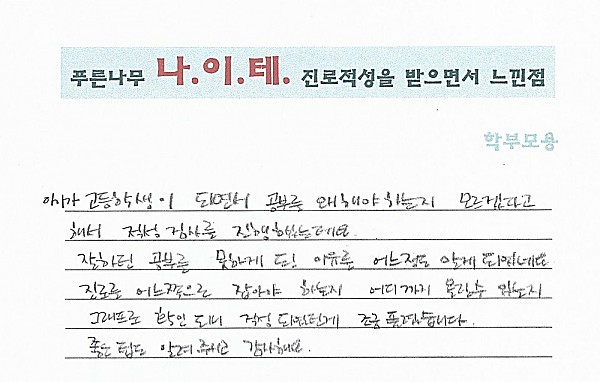 푸른나무 나.이.테. 진로적성을 받으면서 느낀점
학부모용
아이가 고등학생이 되면서 공부를 왜해야 하는지 모르겠다고
해서 적성 검사를 진행하였는데요.
잘하던 공부를 못하게 된 이유를 어느정도 알게 되었네요
진로를 어느쪽으로 잡아야 하는지 어디까지 올릴수 있는지
그래프로 확인 되니 걱정 되었던게 조금 풀렸습니다.
좋은 팁도 알려 주시고 감사해요.